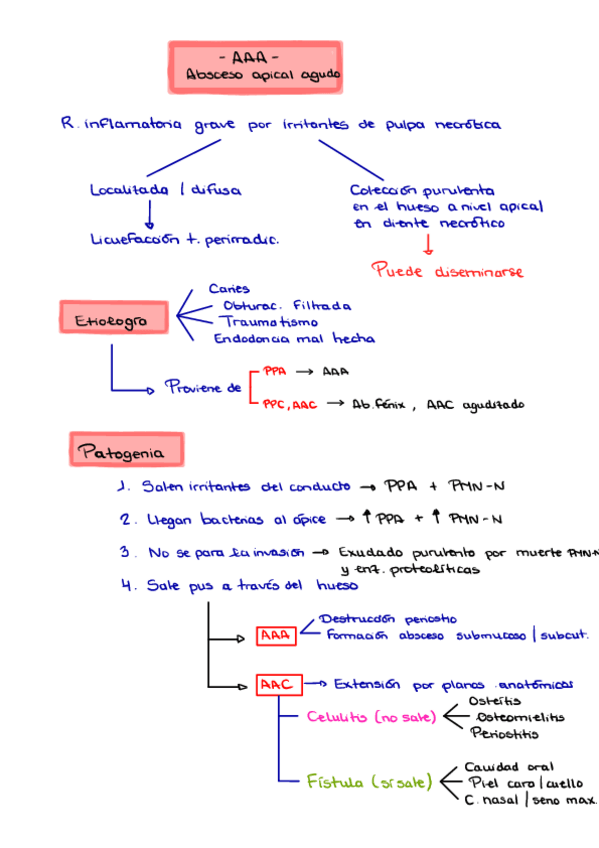 - AAA -
Absceso apical agudo
R. inflamatoria grave por irritantes de pulpa necrótica
Localitada / difusa
Licuefacción t. perirradic.
Colección purulenta
en el hueso a nivel apical
en diente necrótico
Puede diseminarse
Etiología
Caries
Obturac. Filtrada
Traumatismo
Endodoncia mal hecha
Proviene de
PPA → AAA
PPC, AAC → Ab. fénix, AAC aguditado
Patogenia
1. Salen irritantes del conducto → PPA + PMN-N
2. Llegan bacterias al ápice → ↑ PPA + ↑ PMN-N
3. No se para la invasión → Exudado purulento por muerte PMN-N
y ent. proteolíticas
4. Sale pus a través del hueso
AAA
Destrucción periostio
Formación absceso submucoso / subcut.
AAC → Extensión por planos anatómicos
Celulitis (no sale)
Osteítis
Osteomielitis
Periostitis
Fístula (sí sale)
Cavidad oral
Piel cara / cuello
C. nasal / seno max.